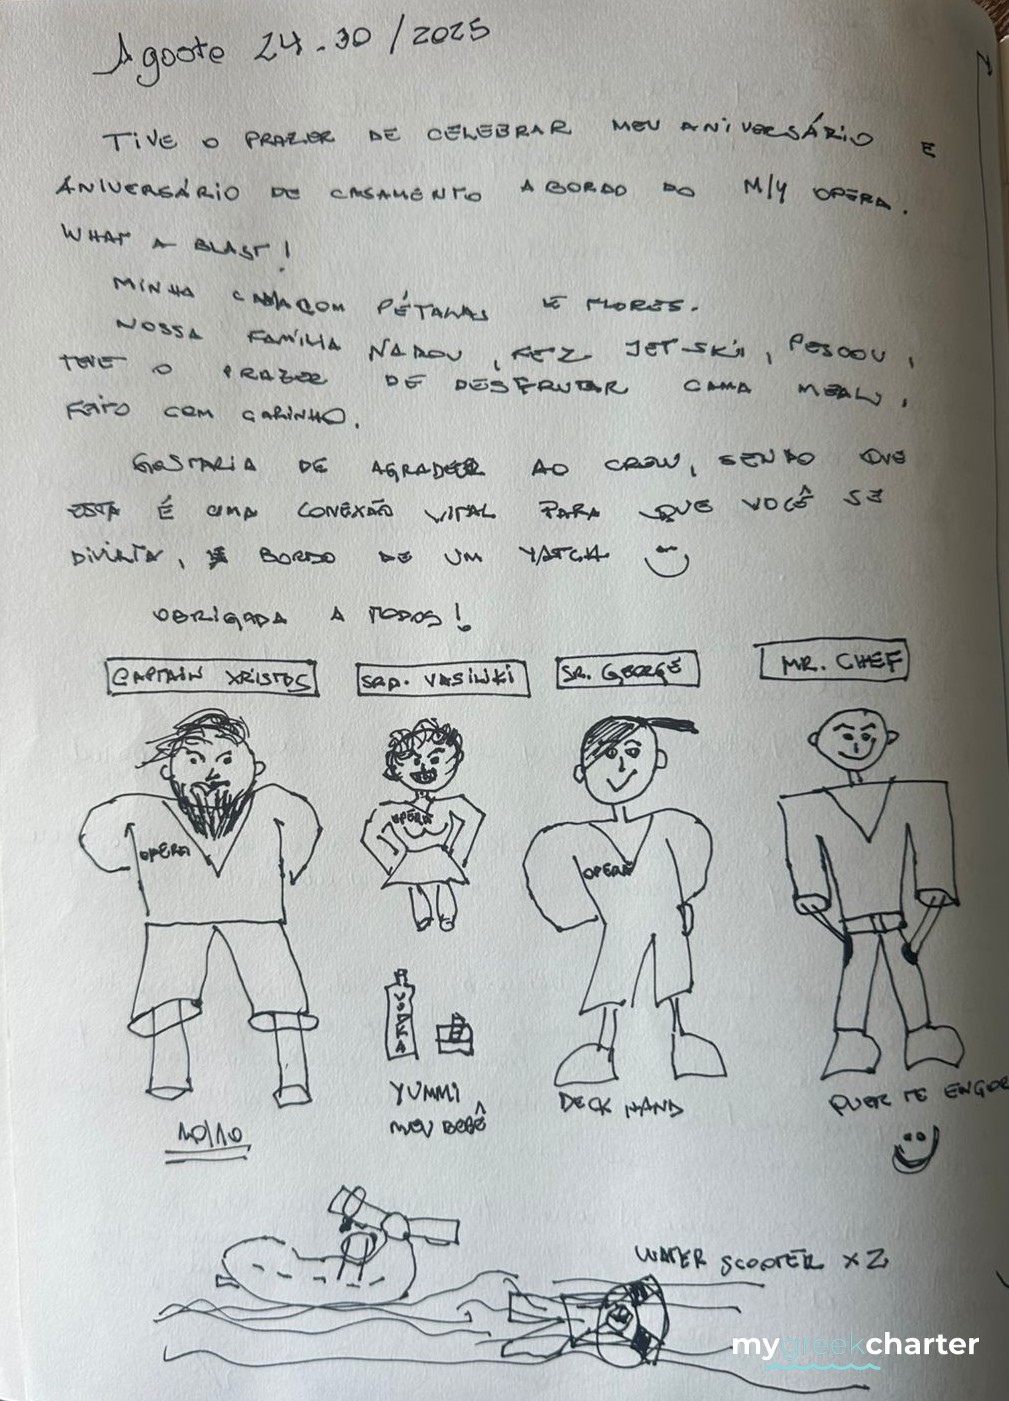 Agosto 24-30/2025
TIVE O PRAZER DE CELEBRAR MEU ANIVERSÁRIO E
ANIVERSÁRIO DE CASAMENTO A BORDO DO M/Y OPERA.
WHAT A BLAST!
MINHA CAMA COM PÉTALAS E FLORES.
NOSSA FAMÍLIA NADOU, FEZ JET-SKI, PESCOU,
TEVE O PRAZER DE DESFRUTAR CAMA MEAL,
FEITO COM CARINHO.
GOSTARIA DE AGRADECER AO CREW, SENDO QUE
ESTA É UMA CONEXÃO VITAL PARA QUE VOCÊ SE
DIVIRTA, BORDO DE UM YATCH
OBRIGADA A TODOS!
CAPTAIN XRISTOS SRA. VASILIKI SR. GEORGE MR. CHEF
OPERA OPERA OPERA
VODKA
YUMMI
MEU BEBÊ
DECK HAND
QUER TE ENGOR
10/10
WATER SCOOTER X2
mygreekcharter